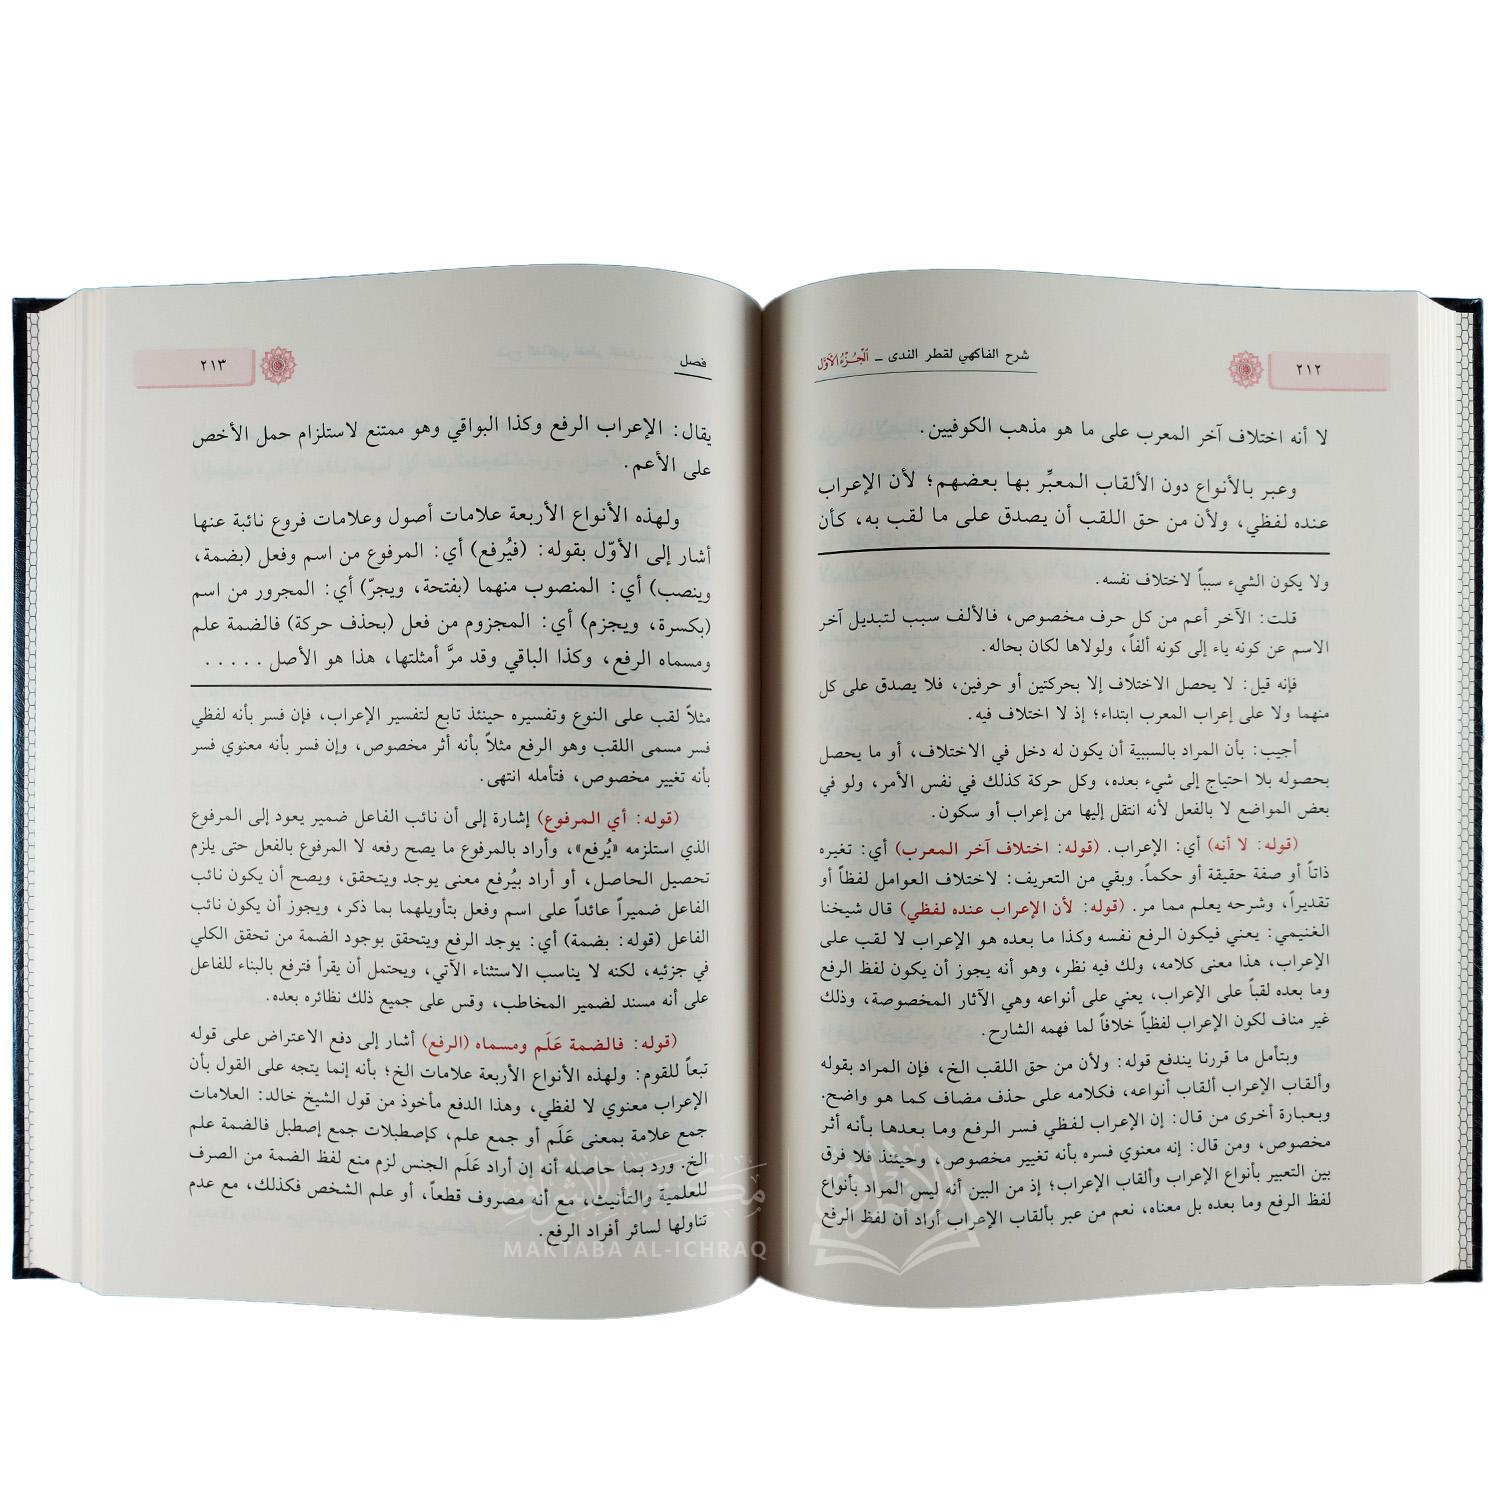 ٢١٢
شرح الفاكهي لقطر الندى ـ الجزء الأول
لا أنه اختلاف آخر المعرب على ما هو مذهب الكوفيين.
وعبر بالأنواع دون الألقاب المعبِّر بها بعضهم؛ لأن الإعراب
عنده لفظي، ولأن من حق اللقب أن يصدق على ما لقب به، كأن
ولا يكون الشيء سبباً لاختلاف نفسه.
قلت: الآخر أعم من كل حرف مخصوص، فالألف سبب لتبديل آخر
الاسم عن كونه ياء إلى كونه ألفاً، ولولاها لكان بحاله.
فإنه قيل: لا يحصل الاختلاف إلا بحركتين أو حرفين، فلا يصدق على كل
منهما ولا على إعراب المعرب ابتداء؛ إذ لا اختلاف فيه.
أجيب: بأن المراد بالسببية أن يكون له دخل في الاختلاف، أو ما يحصل
بحصوله بلا احتياج إلى شيء بعده، وكل حركة كذلك في نفس الأمر، ولو في
بعض المواضع لا بالفعل لأنه انتقل إليها من إعراب أو سكون.
(قوله: لا أنه) أي: الإعراب. (قوله: اختلاف آخر المعرب) أي: تغيره
ذاتاً أو صفة حقيقة أو حكماً. وبقي من التعريف: لاختلاف العوامل لفظاً أو
تقديراً، وشرحه يعلم مما مر. (قوله: لأن الإعراب عنده لفظي) قال شيخنا
الغنيمي: يعني فيكون الرفع نفسه وكذا ما بعده هو الإعراب لا لقب على
الإعراب، هذا معنى كلامه، ولك فيه نظر، وهو أنه يجوز أن يكون لفظ الرفع
وما بعده لقباً على الإعراب، يعني على أنواعه وهي الآثار المخصوصة، وذلك
غير مناف لكون الإعراب لفظياً خلافاً لما فهمه الشارح.
وبتأمل ما قررنا يندفع قوله: ولأن من حق اللقب الخ، فإن المراد بقوله
وألقاب الإعراب ألقاب أنواعه، فكلامه على حذف مضاف كما هو واضح.
وبعبارة أخرى من قال: إن الإعراب لفظي فسر الرفع وما بعدها بأنه أثر
مخصوص، ومن قال: إنه معنوي فسره بأنه تغيير مخصوص، وحينئذ فلا فرق
بين التعبير بأنواع الإعراب وألقاب الإعراب؛ إذ من البين أنه ليس المراد بأنواع
لفظ الرفع وما بعده بل معناه، نعم من عبر بألقاب الإعراب أراد أن لفظ الرفع
فصل
٢١٣
يقال: الإعراب الرفع وكذا البواقي وهو ممتنع لاستلزام حمل الأخص
على الأعم.
ولهذه الأنواع الأربعة علامات أصول وعلامات فروع نائبة عنها
أشار إلى الأوّل بقوله: (فيُرفع) أي: المرفوع من اسم وفعل (بضمة،
وينصب) أي: المنصوب منهما (بفتحة، ويجرّ) أي: المجرور من اسم
(بكسرة، ويجزم) أي: المجزوم من فعل (بحذف حركة) فالضمة علم
ومسماه الرفع، وكذا الباقي وقد مرَّ أمثلتها، هذا هو الأصل .....
مثلاً لقب على النوع وتفسيره حينئذ تابع لتفسير الإعراب، فإن فسر بأنه لفظي
فسر مسمى اللقب وهو الرفع مثلاً بأنه أثر مخصوص، وإن فسر بأنه معنوي فسر
بأنه تغيير مخصوص، فتأمله انتهى.
(قوله: أي المرفوع) إشارة إلى أن نائب الفاعل ضمير يعود إلى المرفوع
الذي استلزمه «يُرفع»، وأراد بالمرفوع ما يصح رفعه لا المرفوع بالفعل حتى يلزم
تحصيل الحاصل، أو أراد بيُرفع معنى يوجد ويتحقق، ويصح أن يكون نائب
الفاعل ضميراً عائداً على اسم وفعل بتأويلهما بما ذكر، ويجوز أن يكون نائب
الفاعل (قوله: بضمة) أي: يوجد الرفع ويتحقق بوجود الضمة من تحقق الكلي
في جزئيه، لكنه لا يناسب الاستثناء الآتي، ويحتمل أن يقرأ فترفع بالبناء للفاعل
على أنه مسند لضمير المخاطب، وقس على جميع ذلك نظائره بعده.
(قوله: فالضمة عَلَم ومسماه (الرفع) أشار إلى دفع الاعتراض على قوله
تبعاً للقوم: ولهذه الأنواع الأربعة علامات الخ؛ بأنه إنما يتجه على القول بأن
الإعراب معنوي لا لفظي، وهذا الدفع مأخوذ من قول الشيخ خالد: العلامات
جمع علامة بمعنى عَلَم أو جمع علم، كإصطبلات جمع إصطبل فالضمة علم
الخ. ورد بما حاصله أنه إن أراد عَلَم الجنس لزم منع لفظ الضمة من الصرف
للعلمية والتأنيث، مع أنه مصروف قطعاً، أو علم الشخص فكذلك، مع عدم
تناولها لسائر أفراد الرفع.
مكتبة الإشراق
MAKTABA AL-ICHRAQ